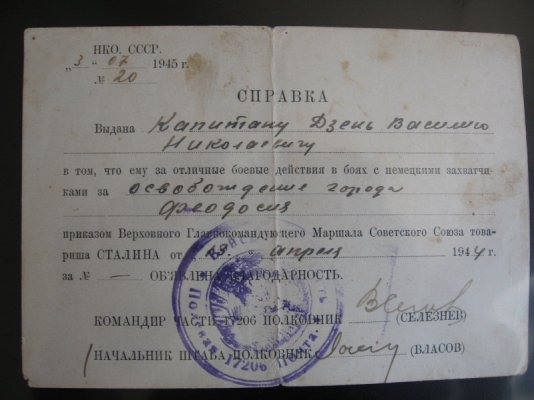 НКО. СССР.
„3“ 07 1945 г.
№ 20
СПРАВКА
Выдана Капитану Дзень Василию
Николаевичу
в том, что ему за отличные боевые действия в боях с немецкими захватчи-
ками за освобождение города
Феодосия
приказом Верховного Главнокомандующего Маршала Советского Союза това-
рища СТАЛИНА от апреля 1944 г.
за № — ОБ'ЯВЛЕНА БЛАГОДАРНОСТЬ.
КОМАНДИР ЧАСТИ 17206 ПОЛКОВНИК (СЕЛЕЗНЕВ)
НАЧАЛЬНИК ШТАБА ПОЛКОВНИК (ВЛАСОВ)
17206 Почта